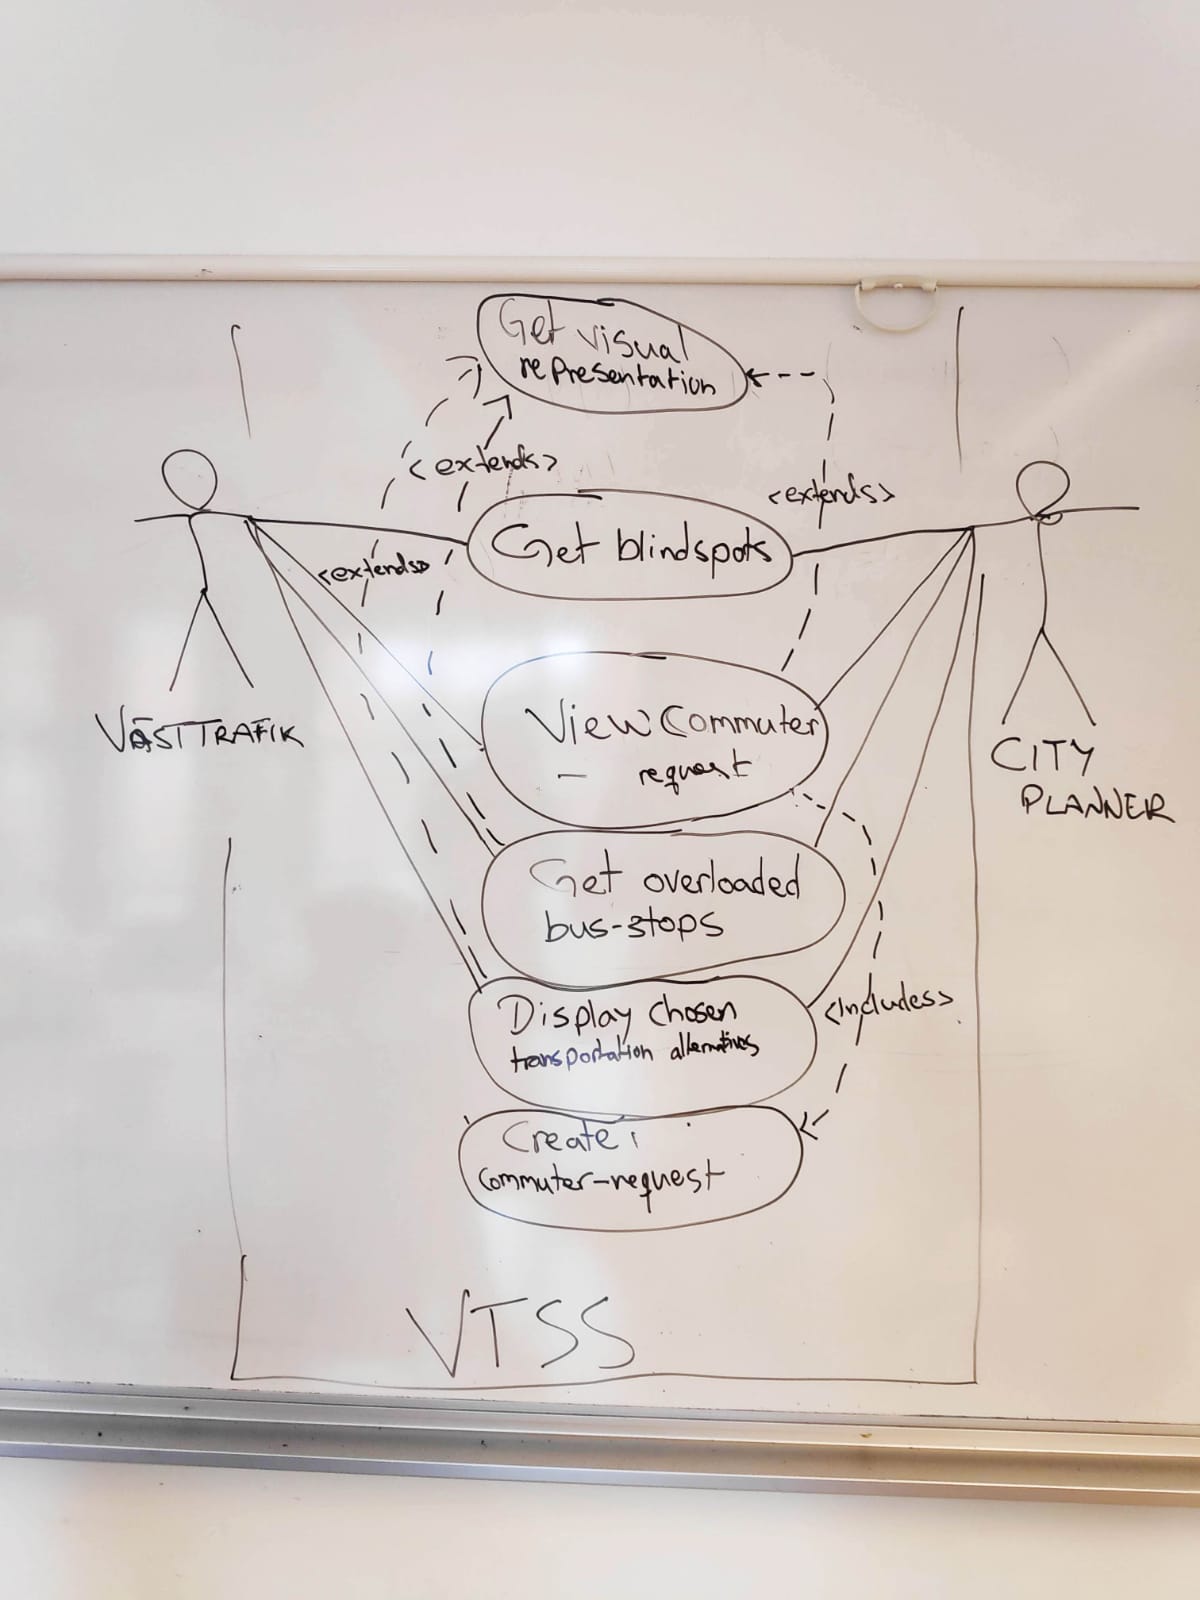 Get visual
representation
<extends>
<extends>
Get blindspots
<extends>
VÄSTTRAFIK
View Commuter
request
CITY
PLANNER
Get overloaded
bus-stops
Display chosen
transportation alternatives
<includes>
Create
commuter-request
VTSS